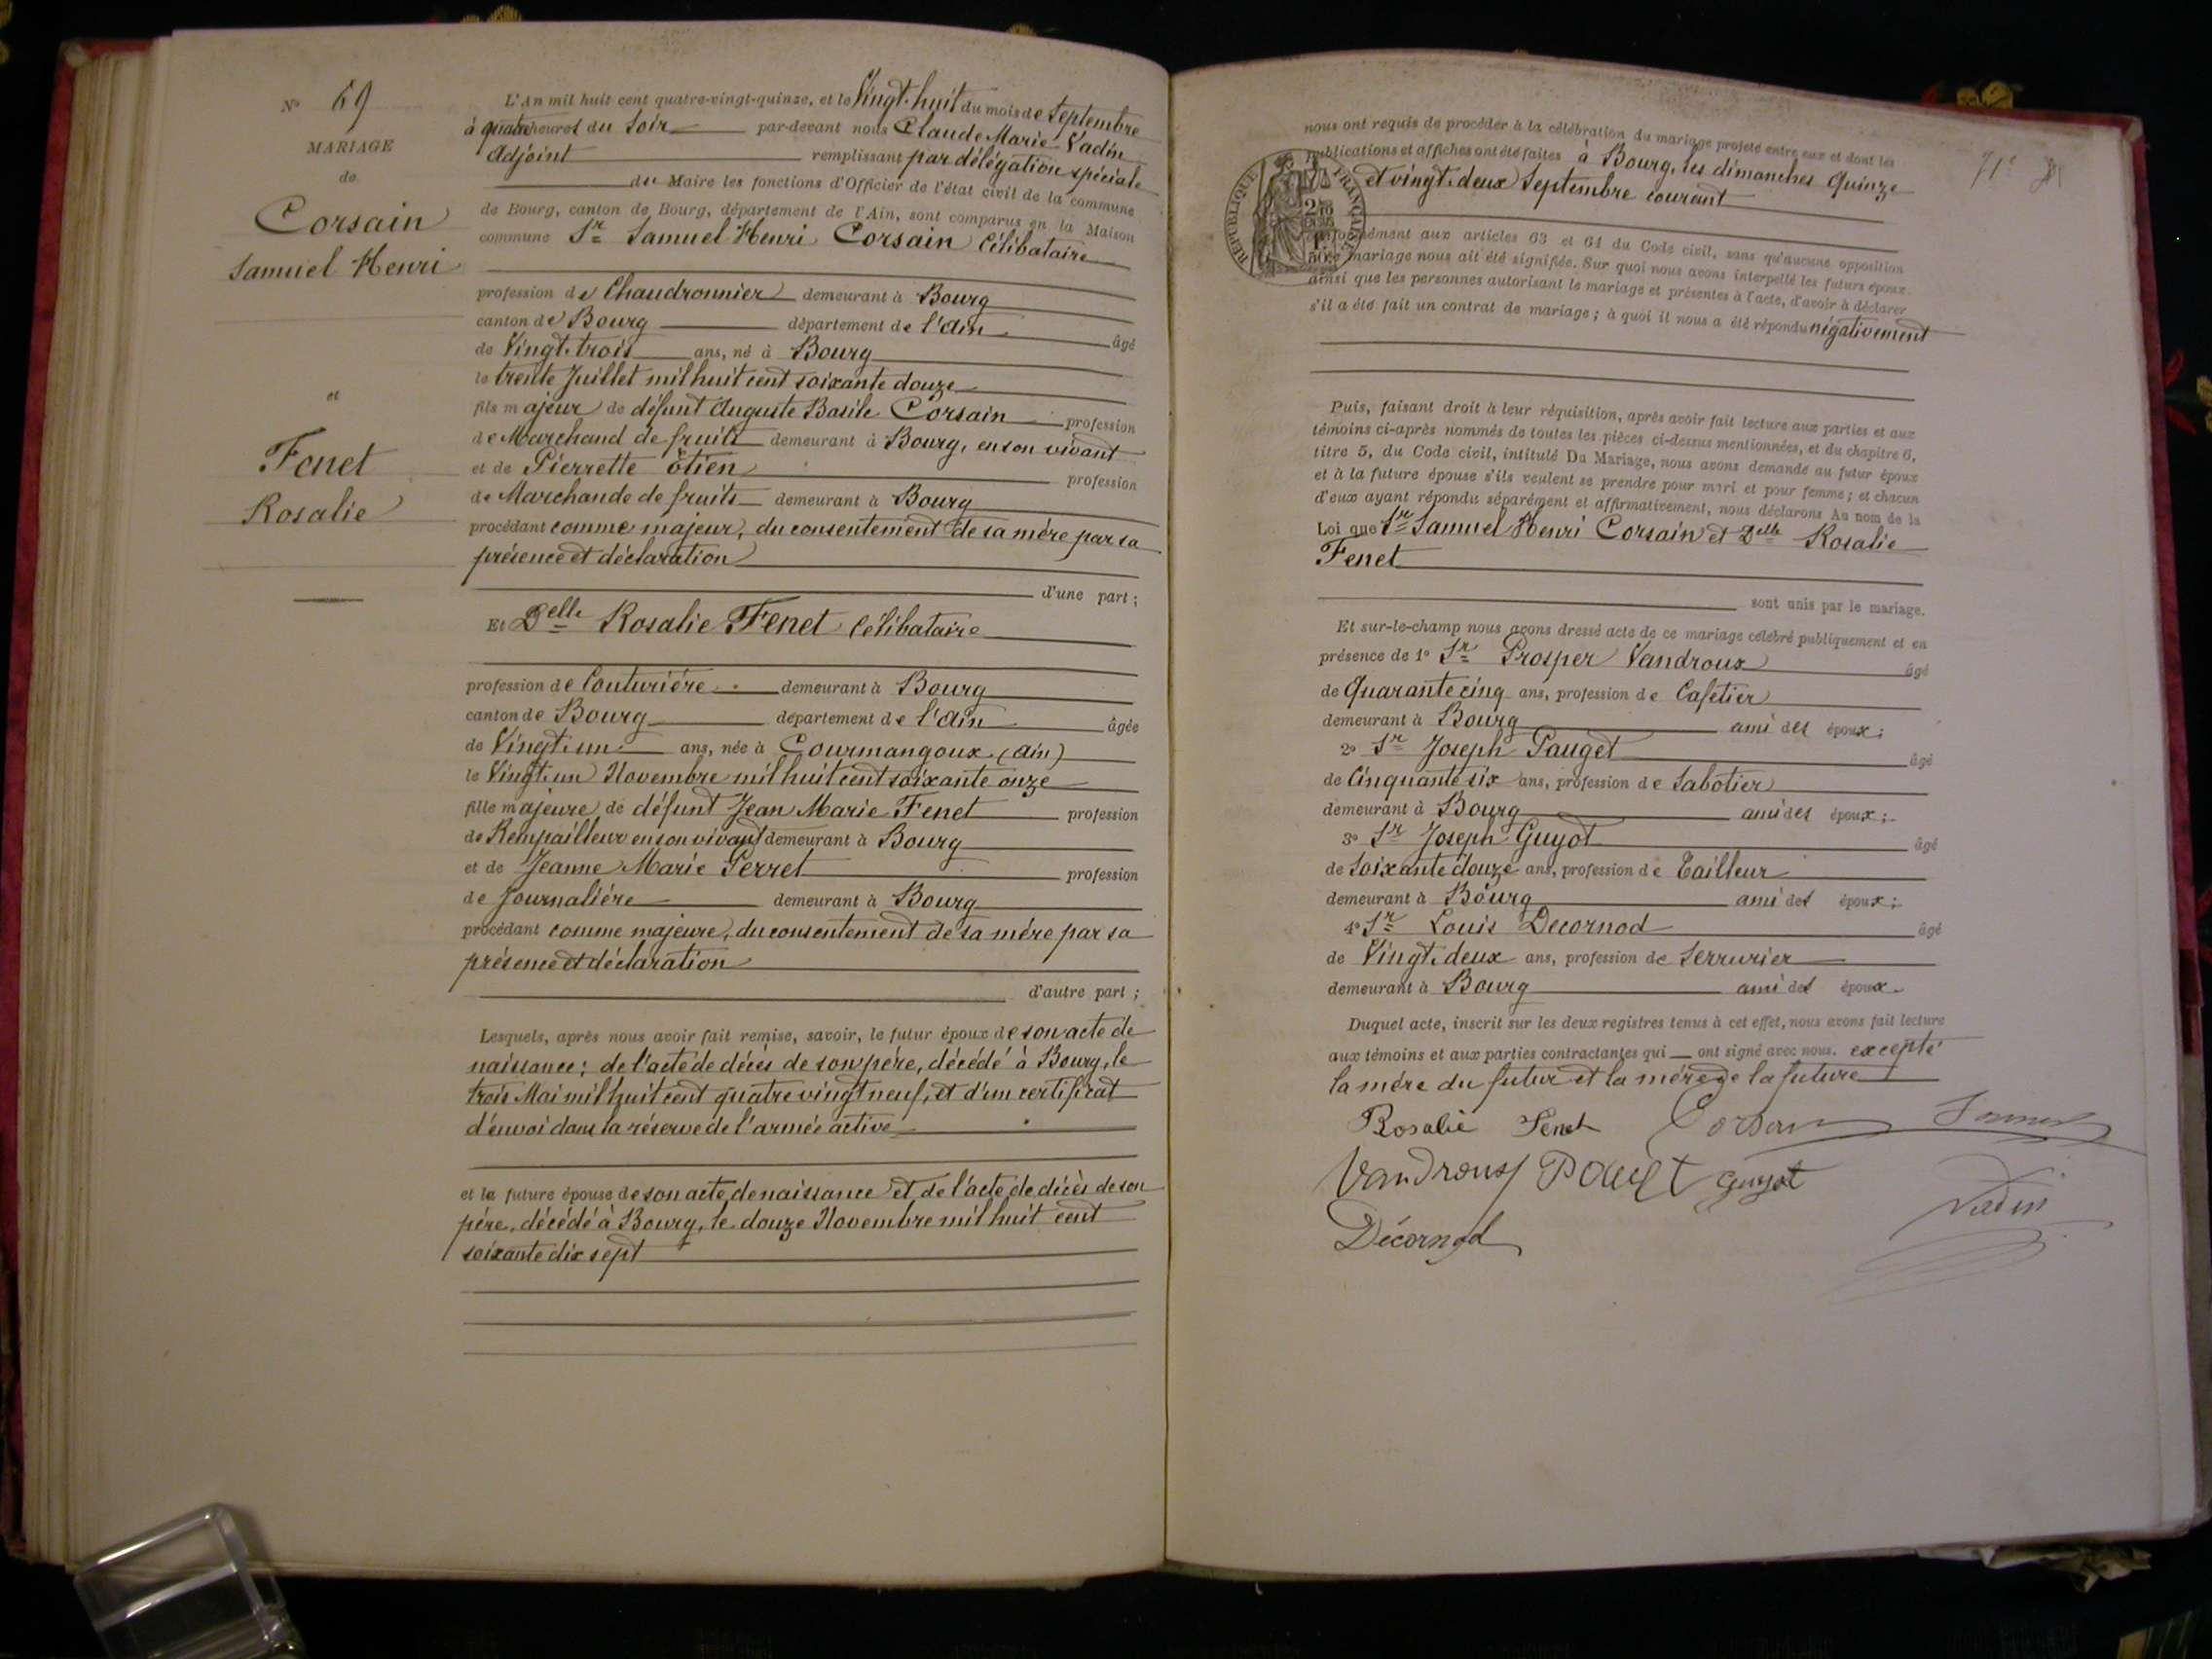 N° 69
MARIAGE
de
Corsain
Samuel Henri
et
Fenet
Rosalie
L'An mil huit cent quatre-vingt-quinze, et le Vingt-huit du mois de Septembre
à quatre heures du Soir par-devant nous Claude Marie Vadin
Adjoint remplissant par délégation spéciale
du Maire les fonctions d'Officier de l'état civil de la commune
de Bourg, canton de Bourg, département de l'Ain, sont comparus en la Maison
commune Sr Samuel Henri Corsain Célibataire
profession de Chaudronnier demeurant à Bourg
canton de Bourg département de l'Ain âgé
de Vingt-trois ans, né à Bourg
le trente Juillet mil huit cent soixante douze
fils majeur de défunt Auguste Basile Corsain profession
de Marchand de fruits demeurant à Bourg, en son vivant
et de Pierrette Etien profession
de Marchande de fruits demeurant à Bourg
procédant comme majeur, du consentement de sa mère par sa
présence et déclaration
d'une part;
Et Delle Rosalie Fenet Célibataire
profession de Couturière demeurant à Bourg
canton de Bourg département de l'Ain âgée
de Vingt-un ans, née à Courmangoux (Ain)
le Vingt un Novembre mil huit cent soixante onze
fille majeure de défunt Jean Marie Fenet profession
de Rempailleur en son vivant demeurant à Bourg
et de Jeanne Marie Perret profession
de Journalière demeurant à Bourg
procédant comme majeure, du consentement de sa mère par sa
présence et déclaration
d'autre part;
Lesquels, après nous avoir fait remise, savoir, le futur époux de son acte de
naissance; de l'acte de décès de son père, décédé à Bourg, le
trois Mai mil huit cent quatre vingt neuf, et d'un certificat
d'envoi dans la réserve de l'armée active
et la future épouse de son acte de naissance et de l'acte de décès de son
père, décédé à Bourg, le douze Novembre mil huit cent
soixante dix sept
71e
nous ont requis de procéder à la célébration du mariage projeté entre eux et dont les
publications et affiches ont été faites à Bourg, les dimanches Quinze
et vingt-deux Septembre courant
RÉPUBLIQUE FRANÇAISE
conformément aux articles 63 et 64 du Code civil, sans qu'aucune opposition
mariage nous ait été signifiée. Sur quoi nous avons interpellé les futurs époux
ainsi que les personnes autorisant le mariage et présentes à l'acte, d'avoir à déclarer
s'il a été fait un contrat de mariage; à quoi il nous a été répondu négativement
Puis, faisant droit à leur réquisition, après avoir fait lecture aux parties et aux
témoins ci-après nommés de toutes les pièces ci-dessus mentionnées, et du chapitre 6,
titre 5, du Code civil, intitulé Du Mariage, nous avons demandé au futur époux
et à la future épouse s'ils veulent se prendre pour mari et pour femme; et chacun
d'eux ayant répondu séparément et affirmativement, nous déclarons Au nom de la
Loi que Sr Samuel Henri Corsain et Delle Rosalie
Fenet
sont unis par le mariage.
Et sur-le-champ nous avons dressé acte de ce mariage célébré publiquement et en
présence de 1° Sr Prosper Vandroux âgé
de Quarante cinq ans, profession de Cafetier
demeurant à Bourg ami des époux;
2° Sr Joseph Pauget âgé
de Cinquante six ans, profession de Sabotier
demeurant à Bourg ami des époux;
3° Sr Joseph Guyot âgé
de Soixante douze ans, profession de Tailleur
demeurant à Bourg ami des époux;
4° Sr Louis Decornod âgé
de Vingt-deux ans, profession de Serrurier
demeurant à Bourg ami des époux.
Duquel acte, inscrit sur les deux registres tenus à cet effet, nous avons fait lecture
aux témoins et aux parties contractantes qui ont signé avec nous. excepté
la mère du futur et la mère de la future
Rosalie Fenet Corsain Samuel
Vandroux Pauget Guyot
Vadin
Décornod